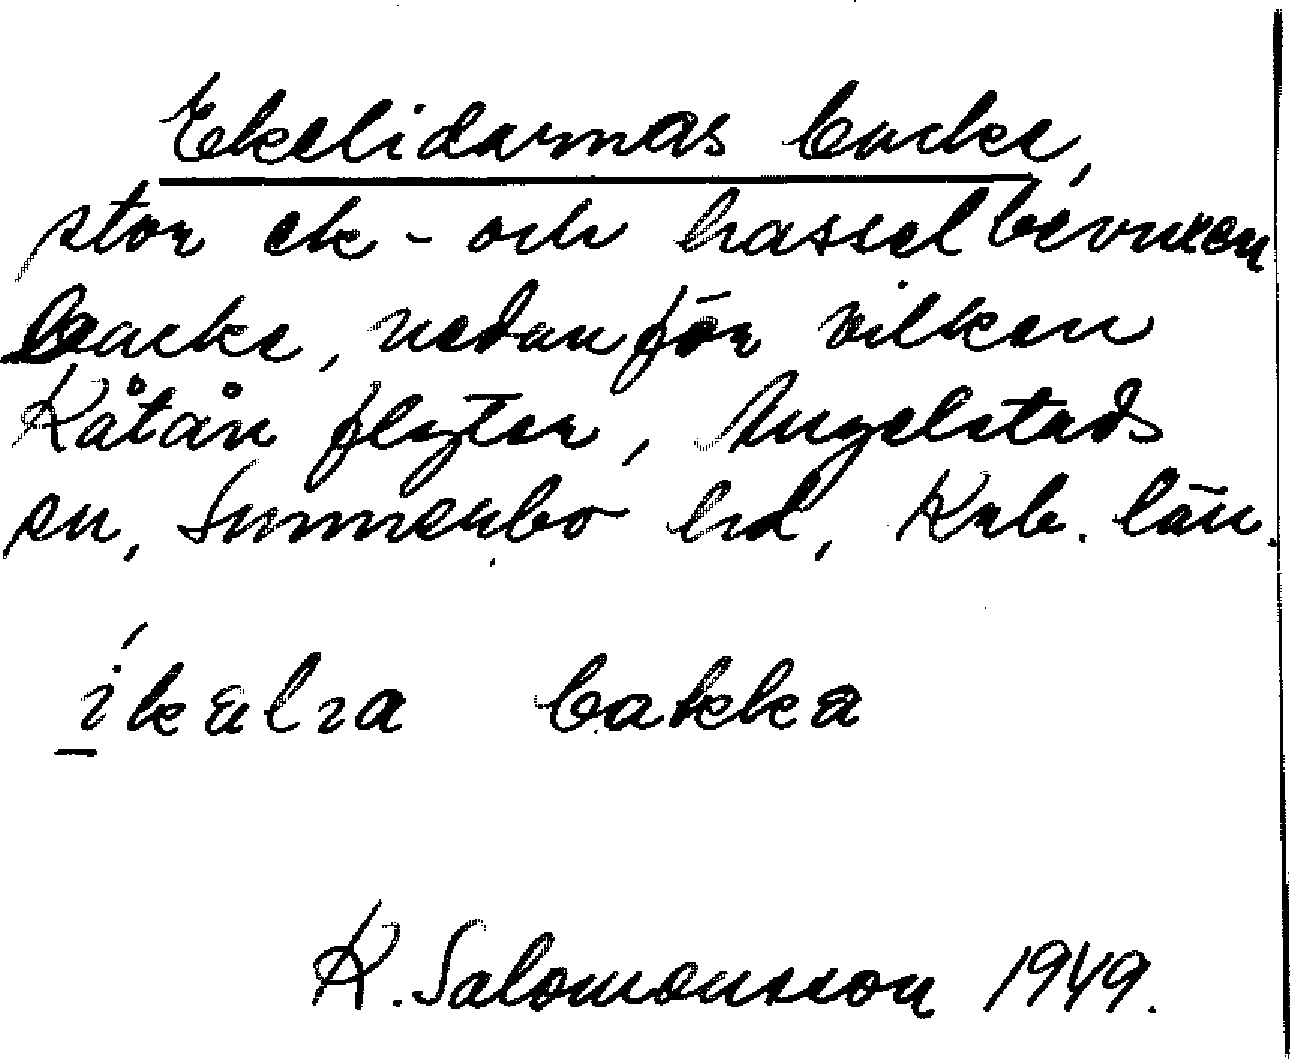 Ekelidarnas backe,
stor ek- och hasselbevuxen
backe, nedanför vilken
Kåtån flyter, Angelstads
sn, Sunnerbo hd, Krb. län.
íkəlıa bakka
K. Salomonsson 1949.